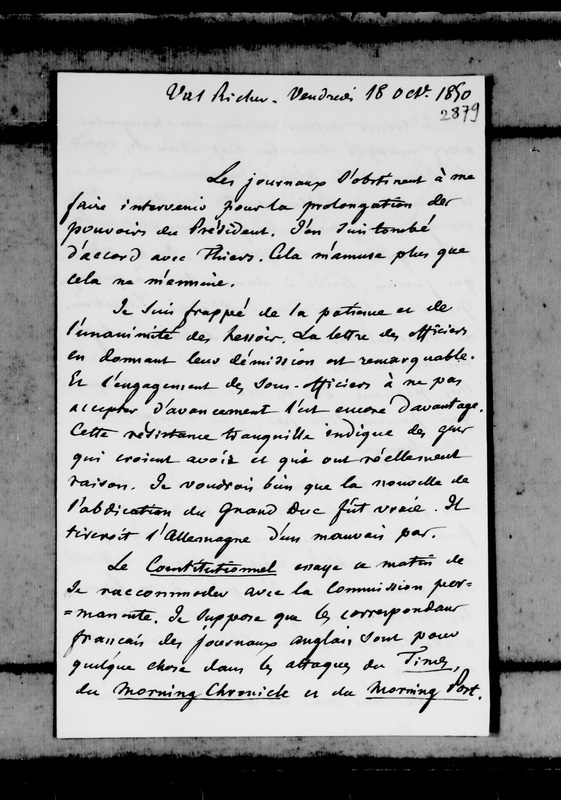 Val Richer. Vendredi 18 Oct. 1850
2879
Les journaux s'obstinent à me
faire intervenir pour la prolongation des
pouvoirs du Président. J'en suis tombé
d'accord avec Thiers. Cela m'amuse plus que
cela ne m'ennuie.
Je suis frappé de la patience et de
l'unanimité des hessois. La lettre des officiers
en donnant leur démission est remarquable.
Et l'engagement des sous-officiers à ne pas
accepter d'avancement l'est encore davantage.
Cette résistance tranquille indique des gens
qui croient avoir et qui ont réellement
raison. Je voudrois bien que la nouvelle de
l'abdication du Grand Duc fût vraie. Il
tireroit l'Allemagne d'un mauvais pas.
Le Constitutionnel essaye ce matin de
se raccommoder avec la Commission per=
=manente. Je suppose que les correspondans
français des journaux anglais sont pour
quelque chose dans les attaques du Times,
du Morning Chronicle et du Morning Post.